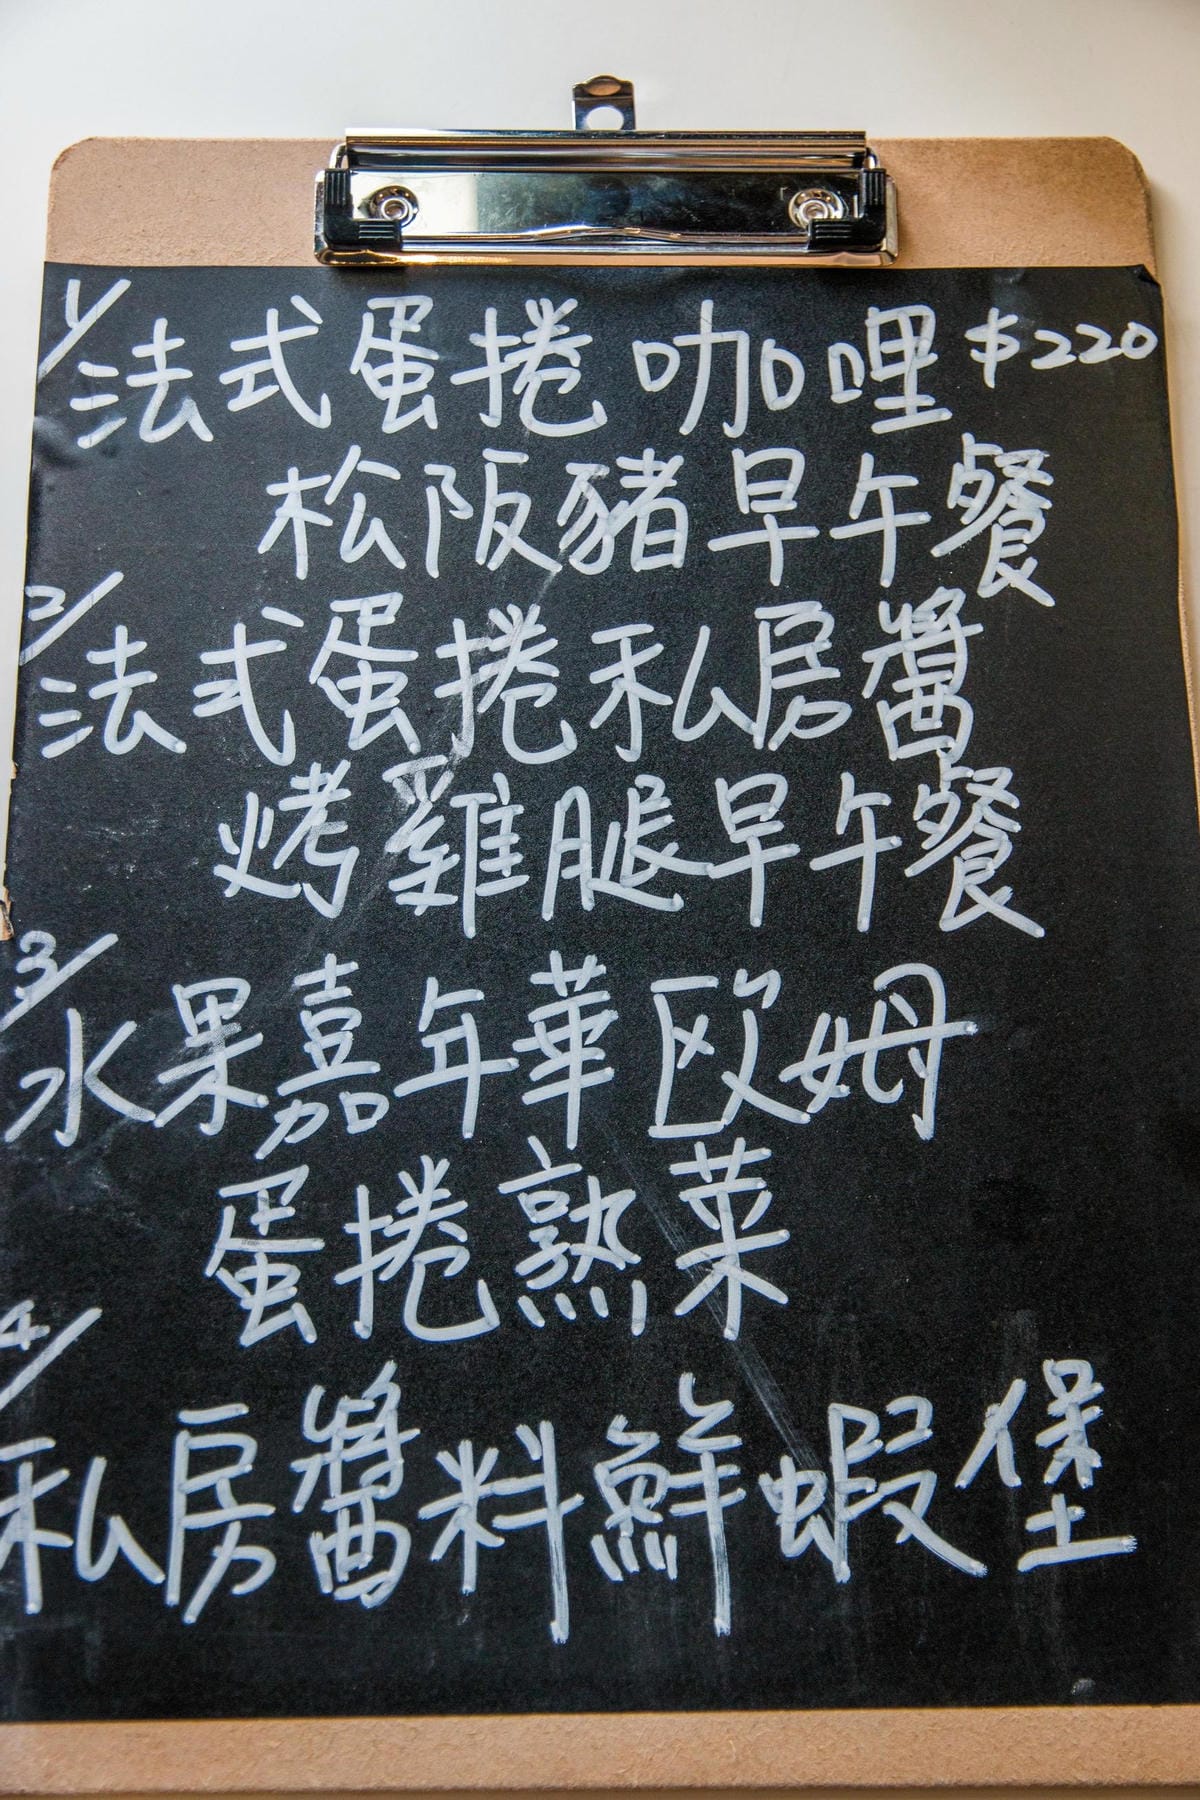 1/法式蛋捲咖哩$220
松阪豬早午餐
2/法式蛋捲私房醬
烤雞腿早午餐
3/水果嘉年華歐姆
蛋捲熟菜
4/私房醬料鮮蝦堡